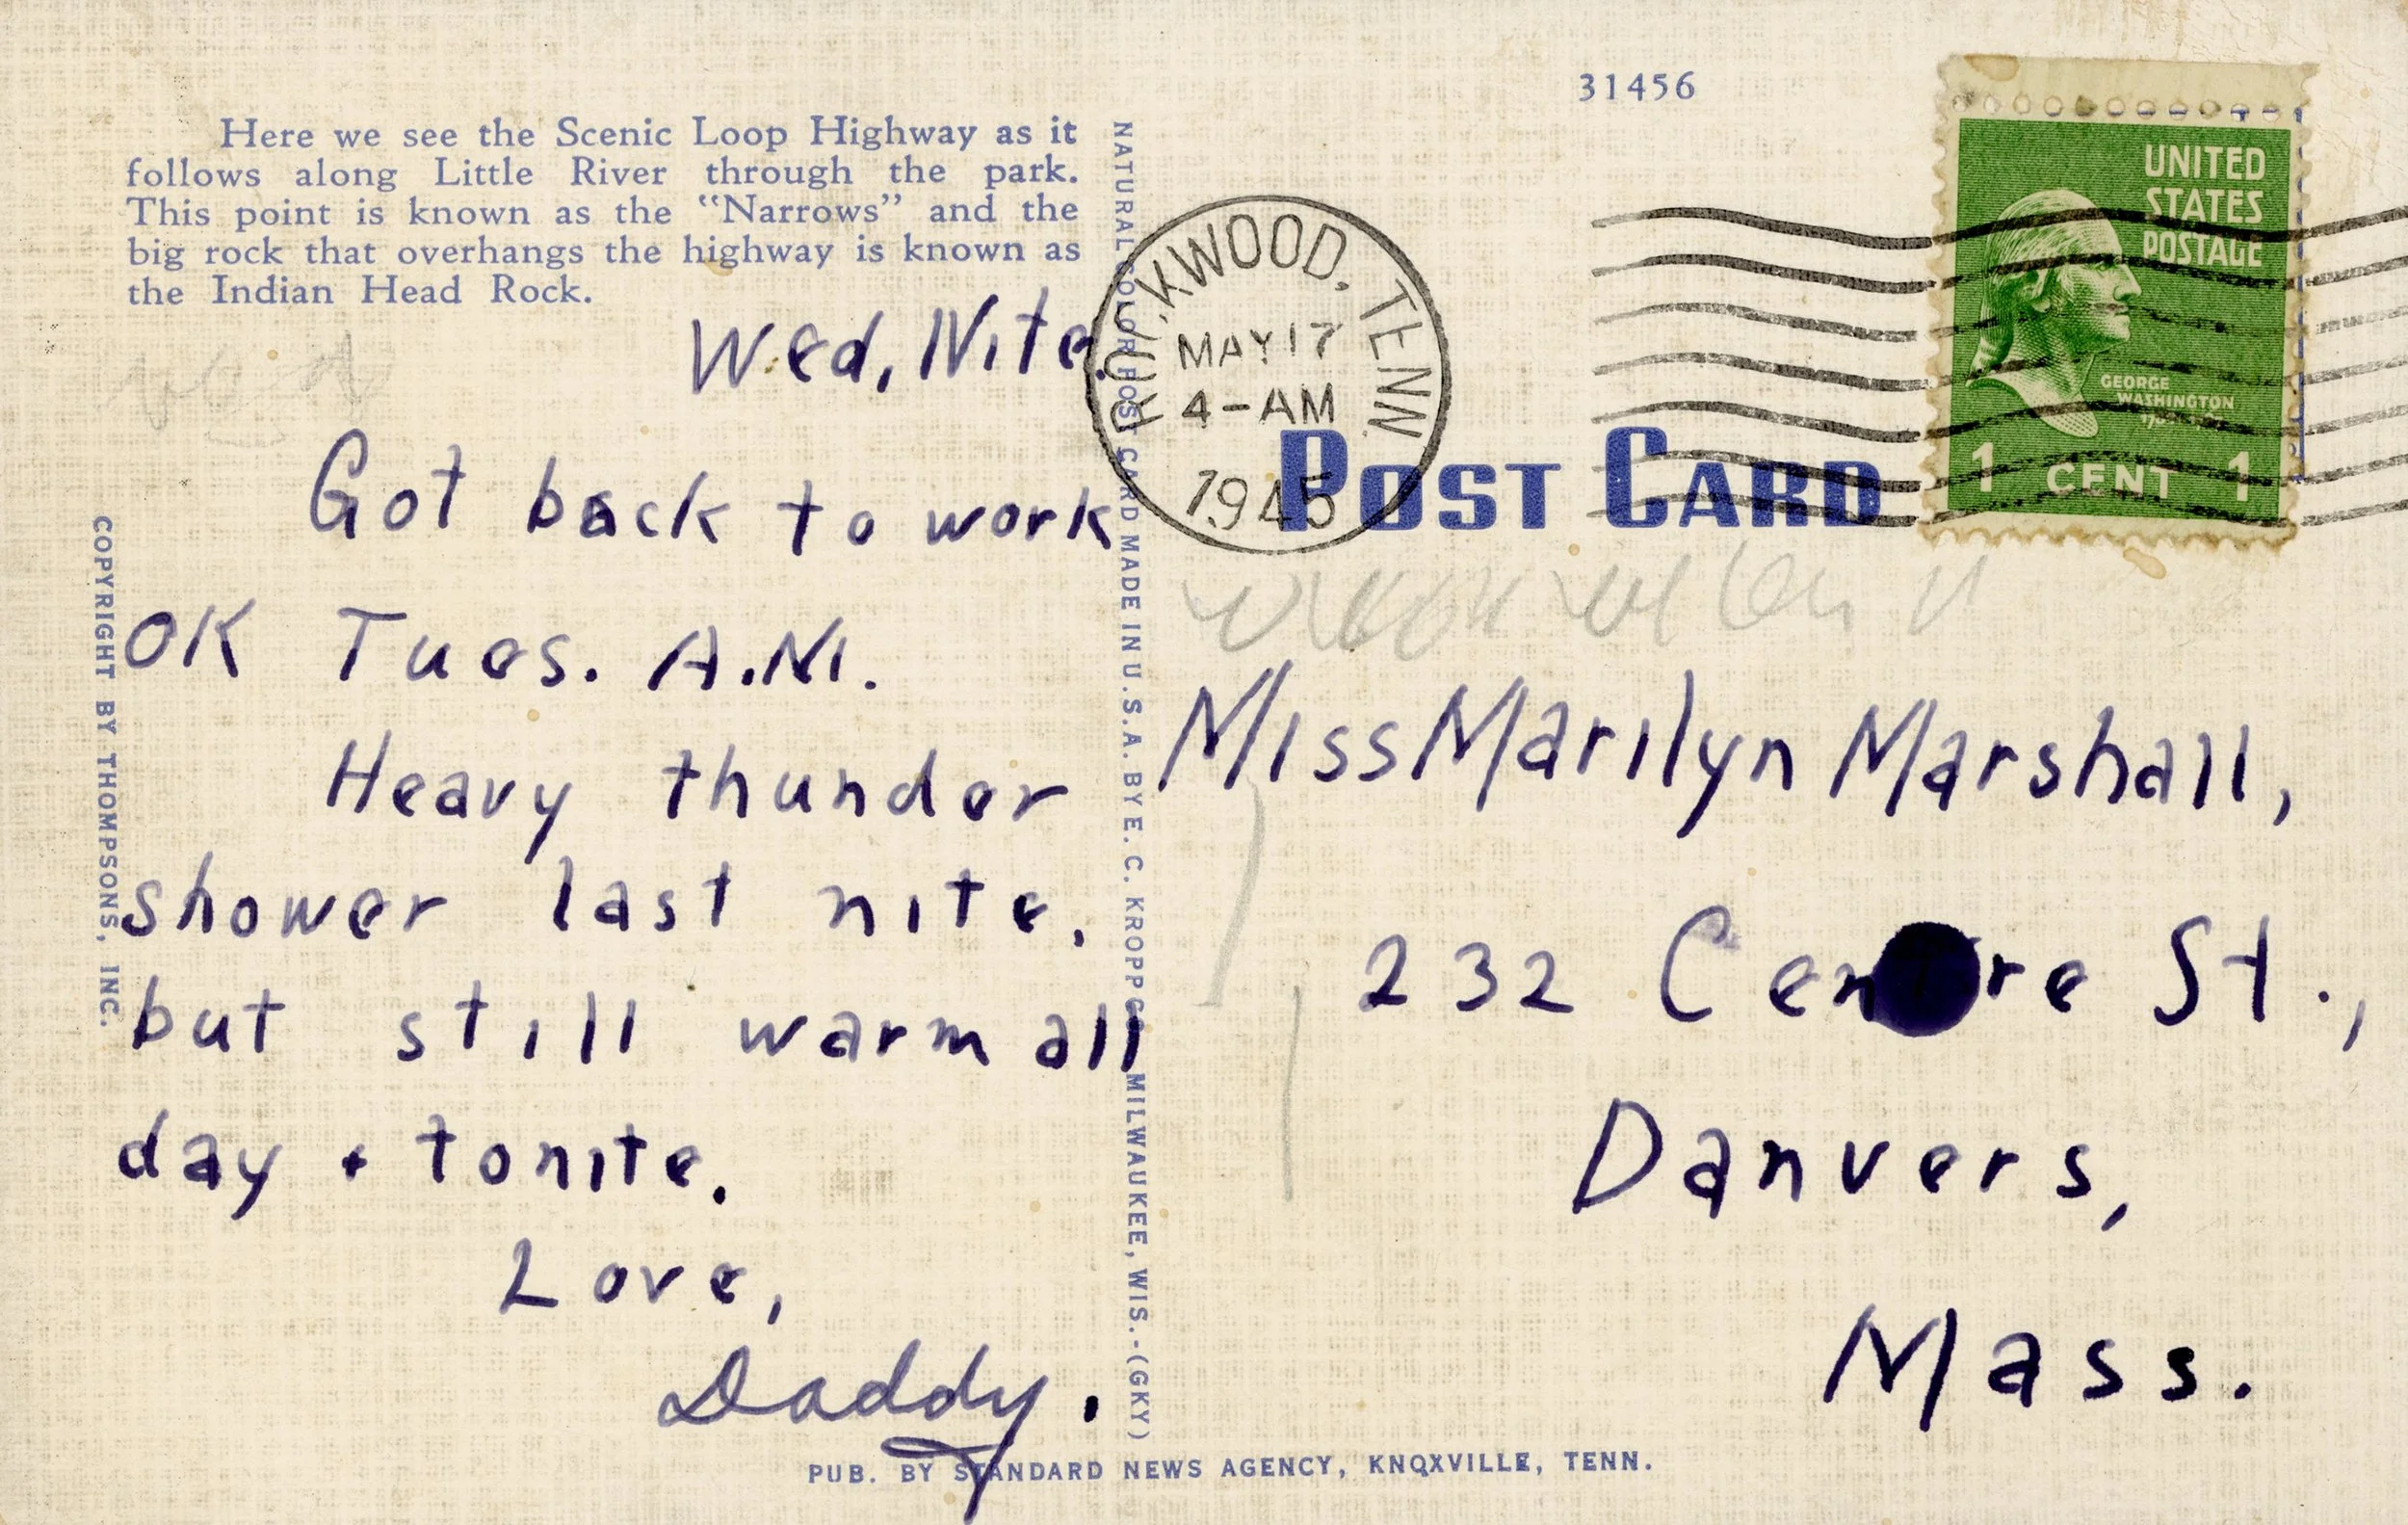 31456
Here we see the Scenic Loop Highway as it
follows along Little River through the park.
This point is known as the "Narrows" and the
big rock that overhangs the highway is known as
the Indian Head Rock.
Wed, Nite.
Got back to work
OK Tues. A.M.
Heavy thunder
shower last nite.
but still warm all
day + tonite.
Love,
Daddy.
COPYRIGHT BY THOMPSONS, INC.
NATURAL COLOR POST CARD MADE IN U.S.A. BY E. C. KROPP CO. MILWAUKEE, WIS.-(GKY)
TENN.
MAY 17
4-AM
1945
POST CARD
UNITED
STATES
POSTAGE
GEORGE
WASHINGTON
1 CENT 1
Miss Marilyn Marshall,
232 Centre St.,
Danvers,
Mass.
PUB. BY STANDARD NEWS AGENCY, KNOXVILLE, TENN.